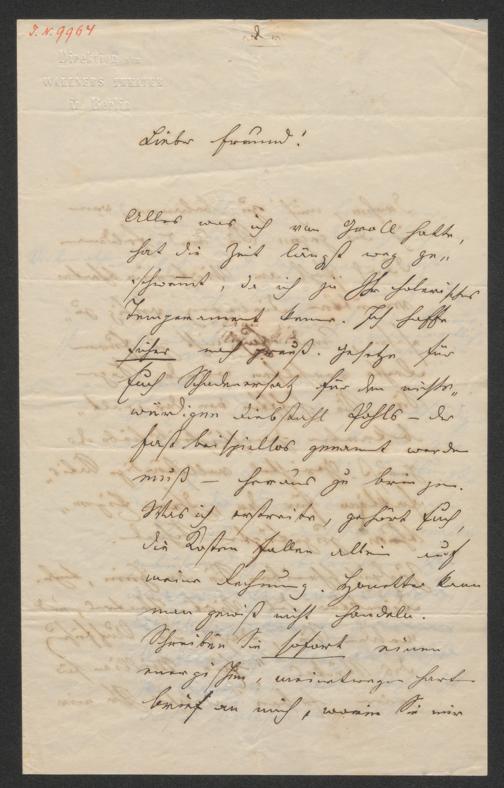 I. N. 9964
Direktion von
WALLNERS THEATER
in Berlin
Lieber Freund!
Alles was ich von Groll hatte,
hat die Zeit längst weg ge„
schwemmt, da ich ja Ihr cholerisches
Temperament kenne. Ich hoffe
sicher nach preuß. Gesetze für
Euch Schadenersatz für den nichts„
würdigen Diebstahl Pohls – der
fast beispiellos genannt werden
muß – heraus zu bringen.
Was ich erstreite, gehört Euch,
die Kosten fallen allein auf
meine Rechnung. Honetter kann
man gewiß nicht handeln.
Schreiben Sie sofort einen
energischen, meinetwegen harten
Brief an mich, worin Sie mir